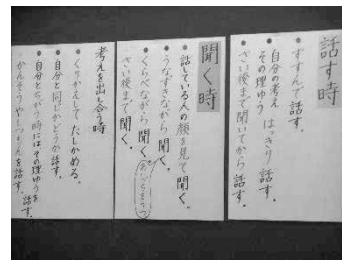 話す時
・すすんで話す。
・自分の考え はっきり話す。
その理ゆう
・さい後まで聞いてから 話す。
聞く時
・話している人の顔を見て聞く。
・うなずきながら 聞く。
・くらべながら 聞く。
・さい後まで 聞く。
考えを出し合う時
・くりかえして たしかめる。
・自分と同じかどうか話す。
・自分とちがう時にはその理ゆうを
かんそうやしつもんを話す。